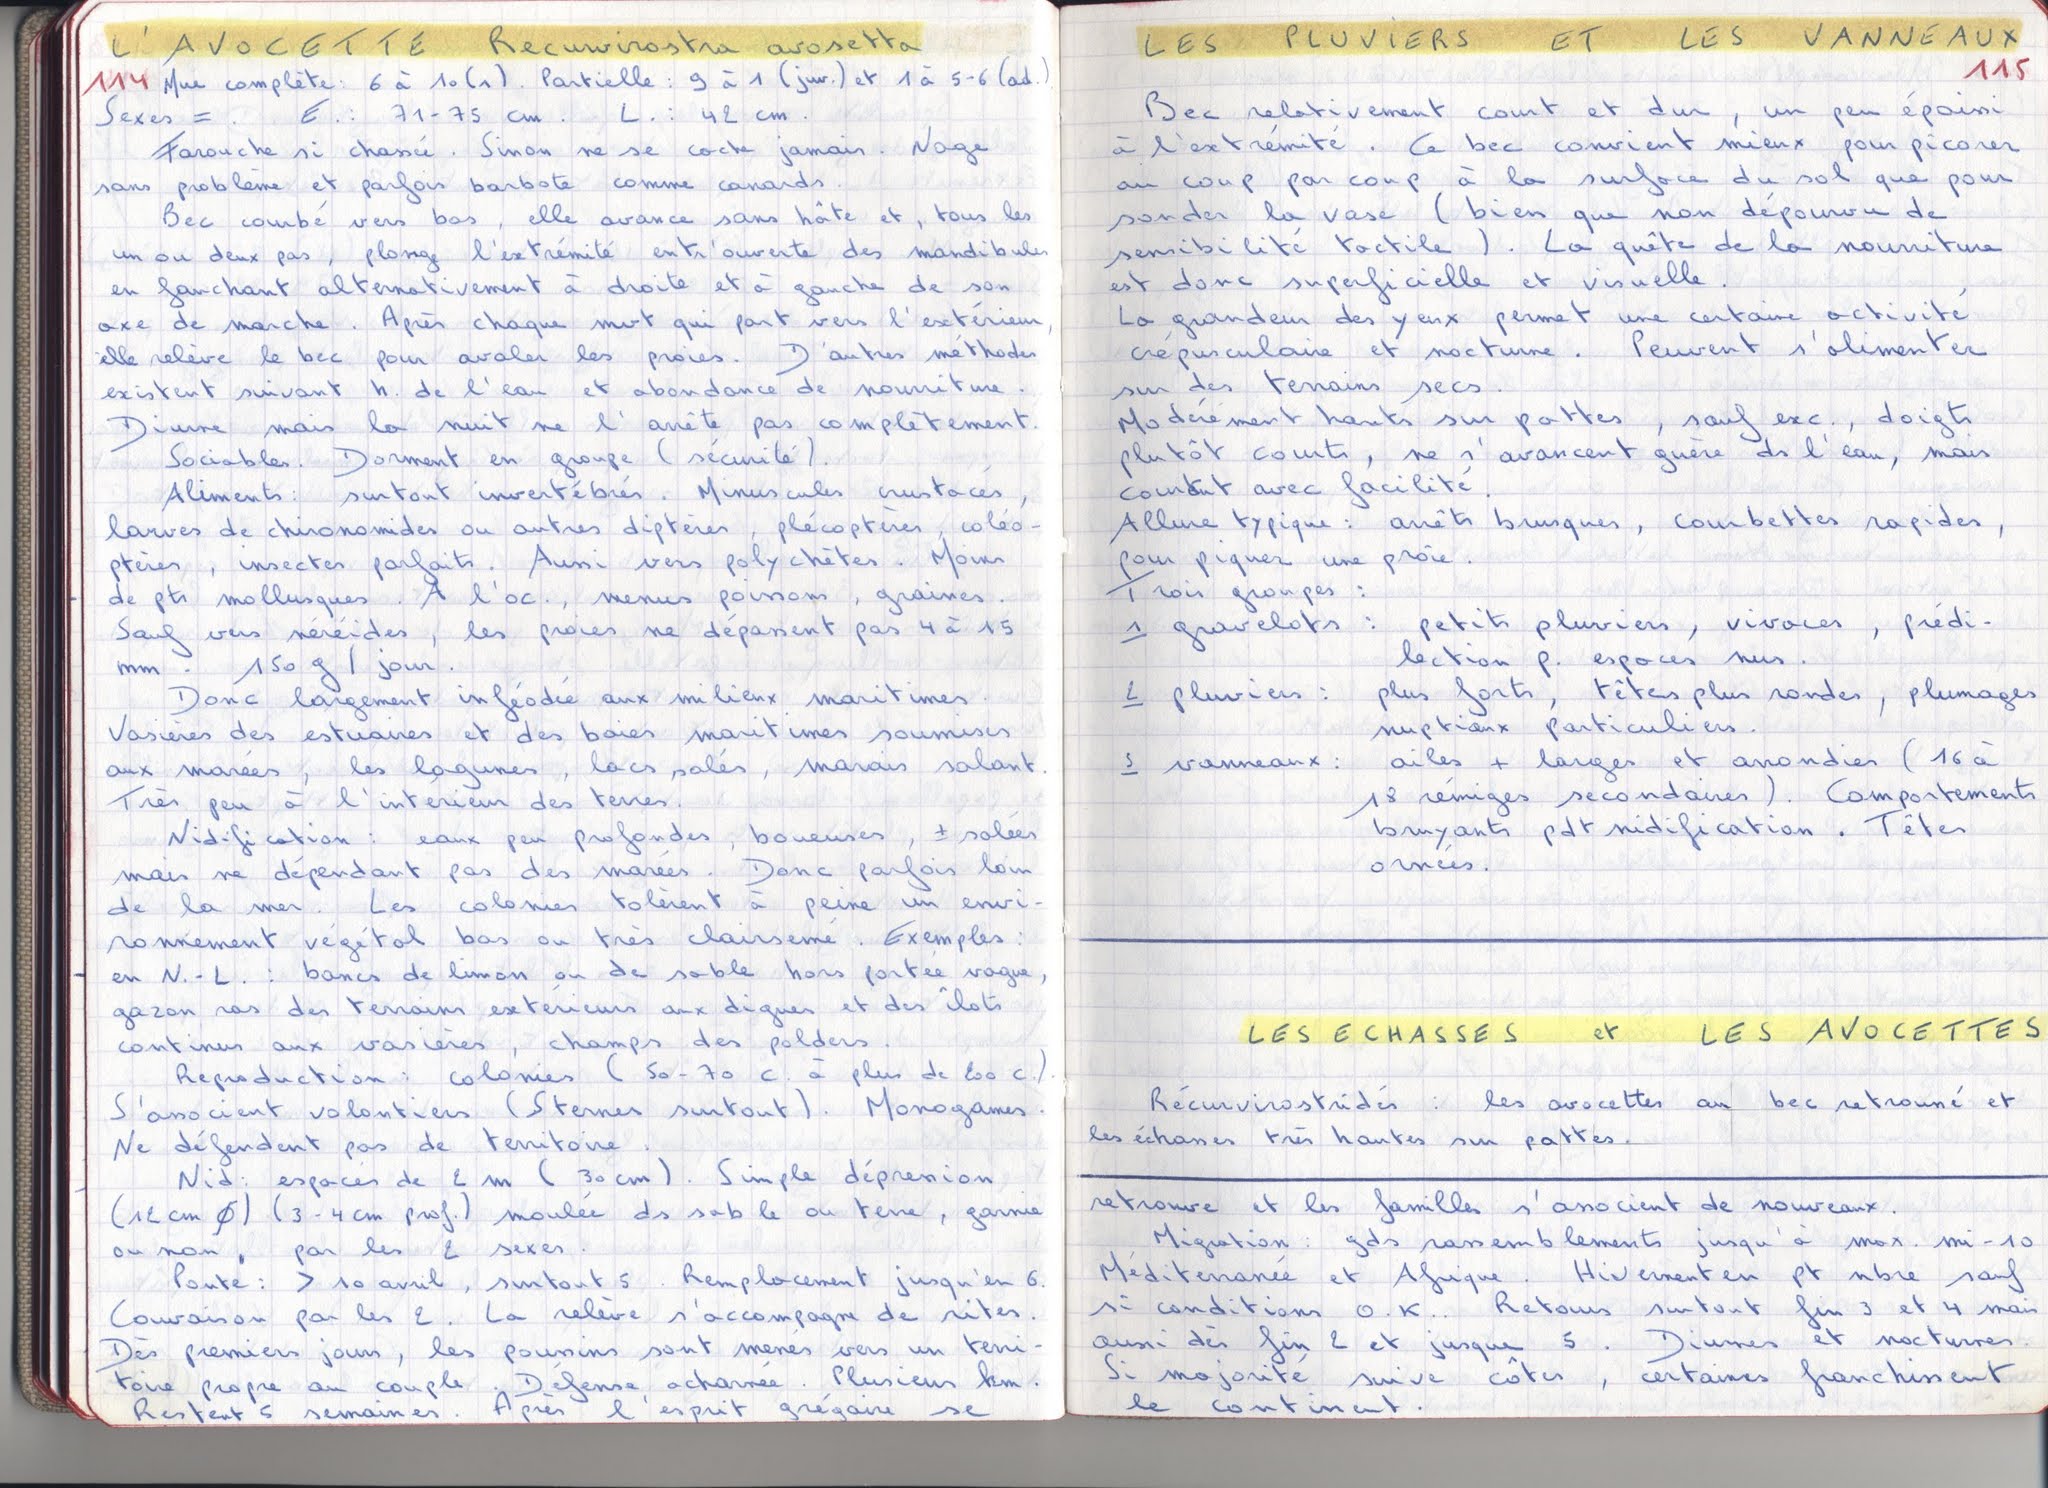 L'AVOCETTE Recurvirostra avosetta
114 Mue complète : 6 à 10 (1). Partielle : 9 à 1 (juv.) et 1 à 5-6 (ad.)
Sexes = . E. : 71-75 cm. L. : 42 cm.
Farouche si chassée. Sinon ne se cache jamais. Nage
sans problème et parfois barbote comme canards.
Bec courbé vers bas, elle avance sans hâte et, tous les
un ou deux pas, plonge l'extrémité entr'ouverte des mandibules
en fauchant alternativement à droite et à gauche de son
axe de marche. Après chaque mvt qui part vers l'extérieur,
elle relève le bec pour avaler les proies. D'autres méthodes
existent suivant h. de l'eau et abondance de nourriture.
Diurne mais la nuit ne l'arrête pas complètement.
Sociables. Dorment en groupe (sécurité).
Aliments : surtout invertébrés. Minuscules crustacés,
larves de chironomides ou autres diptères, plécoptères, coléo-
ptères, insectes parfaits. Aussi vers polychètes. Moins
de pts mollusques. A l'oc., menus poissons, graines.
Sauf vers néréides, les proies ne dépassent pas 4 à 15
mm. 150 g / jour.
Donc largement inféodée aux milieux maritimes.
Vasières des estuaires et des baies maritimes soumises
aux marées, les lagunes, lacs salés, marais salant.
Très peu à l'intérieur des terres.
Nidification : eaux peu profondes, boueuses, ± salées
mais ne dépendant pas des marées. Donc parfois loin
de la mer. Les colonies tolèrent à peine un envi-
ronnement végétal bas ou très clairsemé. Exemples :
en N.-L. : bancs de limon ou de sable hors portée vague,
gazon ras des terrains extérieurs aux digues et des îlots
continus aux vasières, champs des polders.
Reproduction : colonies (50-70 c. à plus de 200 c.).
S'associent volontiers (Sternes surtout). Monogames.
Ne défendent pas de territoire.
Nid : espacés de 2 m (30 cm). Simple dépression
(12 cm Ø) (3-4 cm prof.) moulée ds sable ou terre, garnie
ou non, par les 2 sexes.
Ponte : > 10 avril, surtout 5. Remplacement jusqu'en 6.
Couvaison par les 2. La relève s'accompagne de rites.
Dès premiers jours, les poussins sont menés vers un terri-
toire propre au couple. Défense acharnée. Plusieurs km.
Restent 5 semaines. Après l'esprit grégaire se
LES PLUVIERS ET LES VANNEAUX
115
Bec relativement court et dur, un peu épaissi
à l'extrémité. Ce bec convient mieux pour picorer
au coup par coup à la surface du sol que pour
sonder la vase (bien que non dépourvu de
sensibilité tactile). La quête de la nourriture
est donc superficielle et visuelle.
La grandeur des yeux permet une certaine activité
crépusculaire et nocturne. Peuvent s'alimenter
sur des terrains secs.
Modérément hauts sur pattes, sauf exc., doigts
plutôt courts, ne s'avancent guère ds l'eau, mais
courent avec facilité.
Allure typique : arrêts brusques, courbettes rapides,
pour piquer une proie.
Trois groupes :
1 gravelots : petits pluviers, vivaces, prédi-
lection p. espaces nus.
2 pluviers : plus forts, têtes plus rondes, plumages
nuptiaux particuliers.
3 vanneaux : ailes + larges et arrondies (16 à
18 rémiges secondaires). Comportements
bruyants pdt nidification. Têtes
ornées.
LES ECHASSES et LES AVOCETTES
Récurvirostridés : les avocettes au bec retroussé et
les échasses très hautes sur pattes.
retrouve et les familles s'associent de nouveaux.
Migration : gds rassemblements jusqu'à max. mi-10
Méditerranée et Afrique. Hivernent en pt nbre sauf
si conditions O.K.. Retours surtout fin 3 et 4 mais
aussi dès fin 2 et jusque 5. Diurnes et nocturnes.
Si majorité suive côtes, certaines franchissent
le continent.